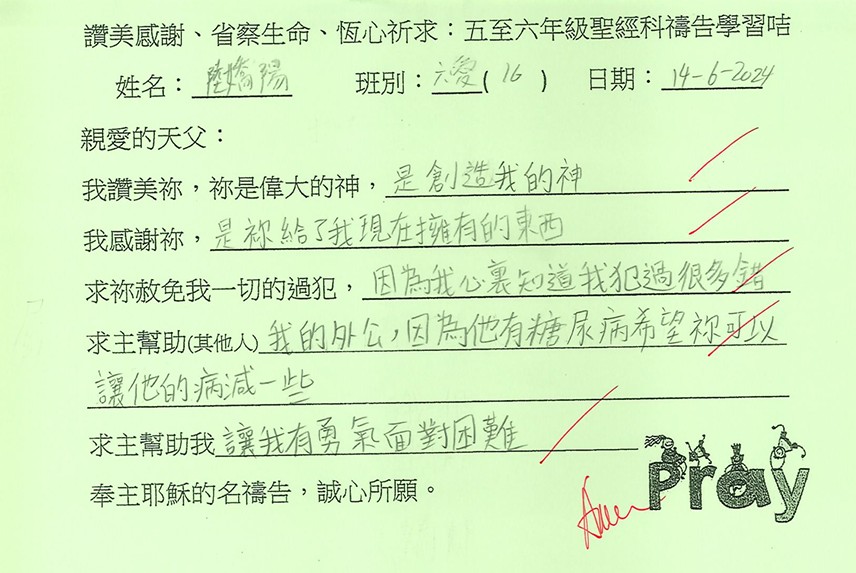 讚美感謝、省察生命、恆心祈求：五至六年級聖經科禱告學習咭
姓名：陸嬌陽 班別：六愛(16) 日期：14-6-2024
親愛的天父：
我讚美祢，祢是偉大的神，是創造我的神
我感謝祢，是祢給了我現在擁有的東西
求祢赦免我一切的過犯，因為我心裏知道我犯過很多錯
求主幫助(其他人)我的外公，因為他有糖尿病希望祢可以
讓他的病減一些
求主幫助我讓我有勇氣面對困難
奉主耶穌的名禱告，誠心所願。
Amen
Pray